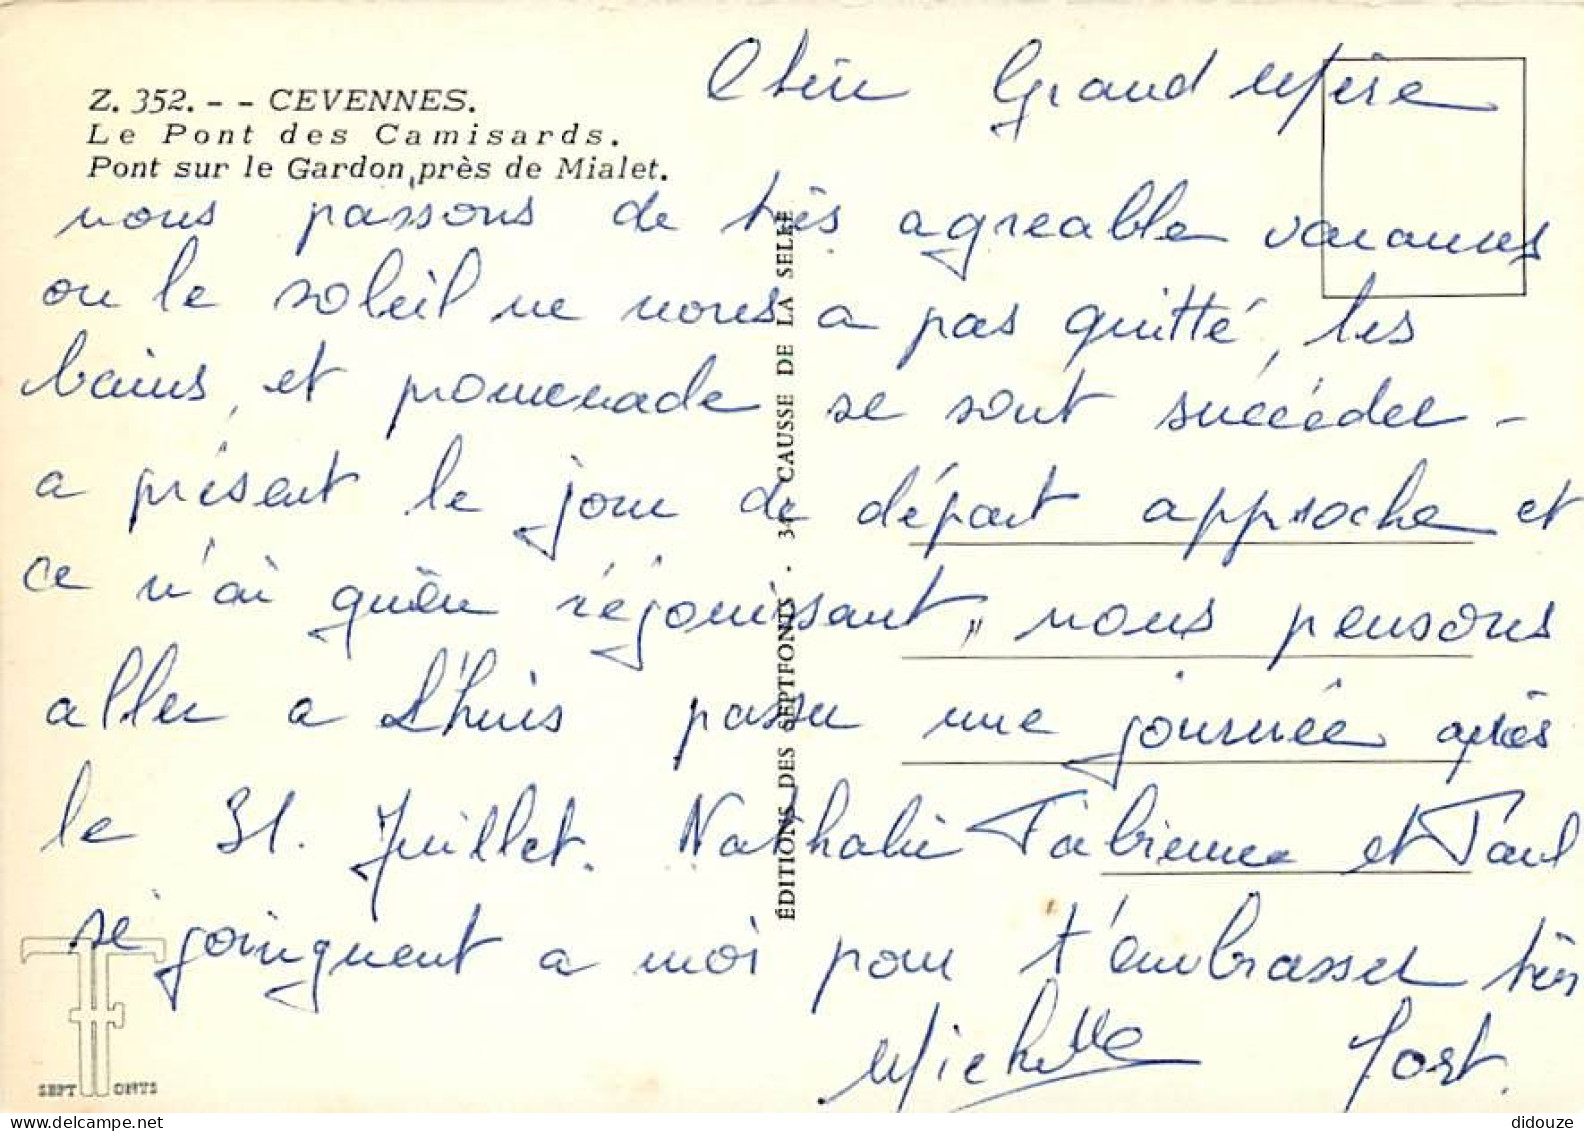 Z. 352. - - CEVENNES.
Le Pont des Camisards.
Pont sur le Gardon, près de Mialet.
Chère Grand Mère
nous passons de très agreable vacances
ou le soleil ne nous a pas quitté, les
bains, et promenade se sont succéder -
a présent le jour de départ approche et
ce n'ai guère réjouissant, nous pensons
aller a L'huis passer une journée après
le 31. Juillet. Nathalie Fabienne et Paul
se joinguent a moi pour t'embrasser très
Michelle fort.
ÉDITIONS DES SEPTFONTS . 34 - CAUSSE DE LA SELLE
SEPT FONTS
didouze